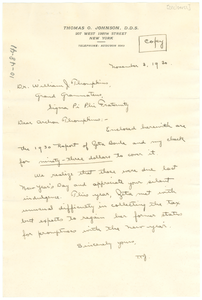 THOMAS G. JOHNSON, D.D.S.
NEW YORK
Copy
November 2, 1920
Dr. William J. Thompkins
Grand Grammateus
Sigma Pi Phi Fraternity
Dear Archon Thompkins:-
Enclosed herewith are
the 1920 Report of Zeta Boule and my check
for ninety-three dollars to cover it.
We realize that these were due last
New Year's Day and appreciate your silent
indulgence. This year, Zeta met with
unusual difficulty in collecting the tax
but expects to regain her former status
for promptness with the new year.
Sincerely yours,